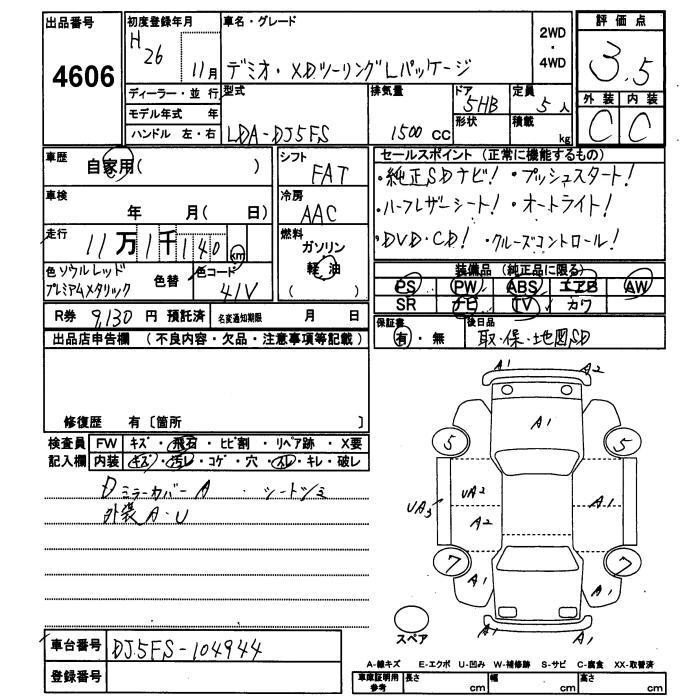 出品番号
4606
初度登録年月
H26 11月
車名・グレード
デミオ・XDツーリングLパッケージ
2WD
・
4WD
評価点
3.5
外装 内装
C C
ディーラー・並行
モデル年式 年
ハンドル 左・右
型式
LDA-DJ5FS
排気量
1500 CC
ドア
5HB
形状
定員
5人
積載
kg
車歴
自家用( )
シフト
FAT
車検
年 月( 日)
冷房
AAC
走行
11万1千140 km
燃料
ガソリン
軽油
( )
色 ソウルレッド
プレミアムメタリック
色替
色コード
41V
R券 9,130 円 預託済 名変通知期限 月 日
セールスポイント (正常に機能するもの)
・純正SDナビ! ・プッシュスタート!
・ハーフレザーシート! ・オートライト!
・DVD・CD! ・クルーズコントロール!
装備品 (純正品に限る)
PS PW ABS エアB AW
SR ナビ TV カワ
保証書
有・無
後日品
取・保・地図SD
出品店申告欄 (不良内容・欠品・注意事項等記載)
修復歴 有〔箇所 〕
検査員
記入欄
FW キズ・飛石・ヒビ割・リペア跡・X要
内装 キズ・汚レ・コゲ・穴・スレ・キレ・破レ
Dミラーカバー A ・シートシミ
外装 A・U
A1 A2
A1
5 5
UA3 UA2
A2
A1
A1
7 7
A1 A1
A1 A1
スペア
車台番号 DJ5FS-104944
登録番号
A-線キズ E-エクボ U-凹み W-補修跡 S-サビ C-腐食 XX-取替済
車庫証明用
参考
長さ cm 幅 cm 高さ cm